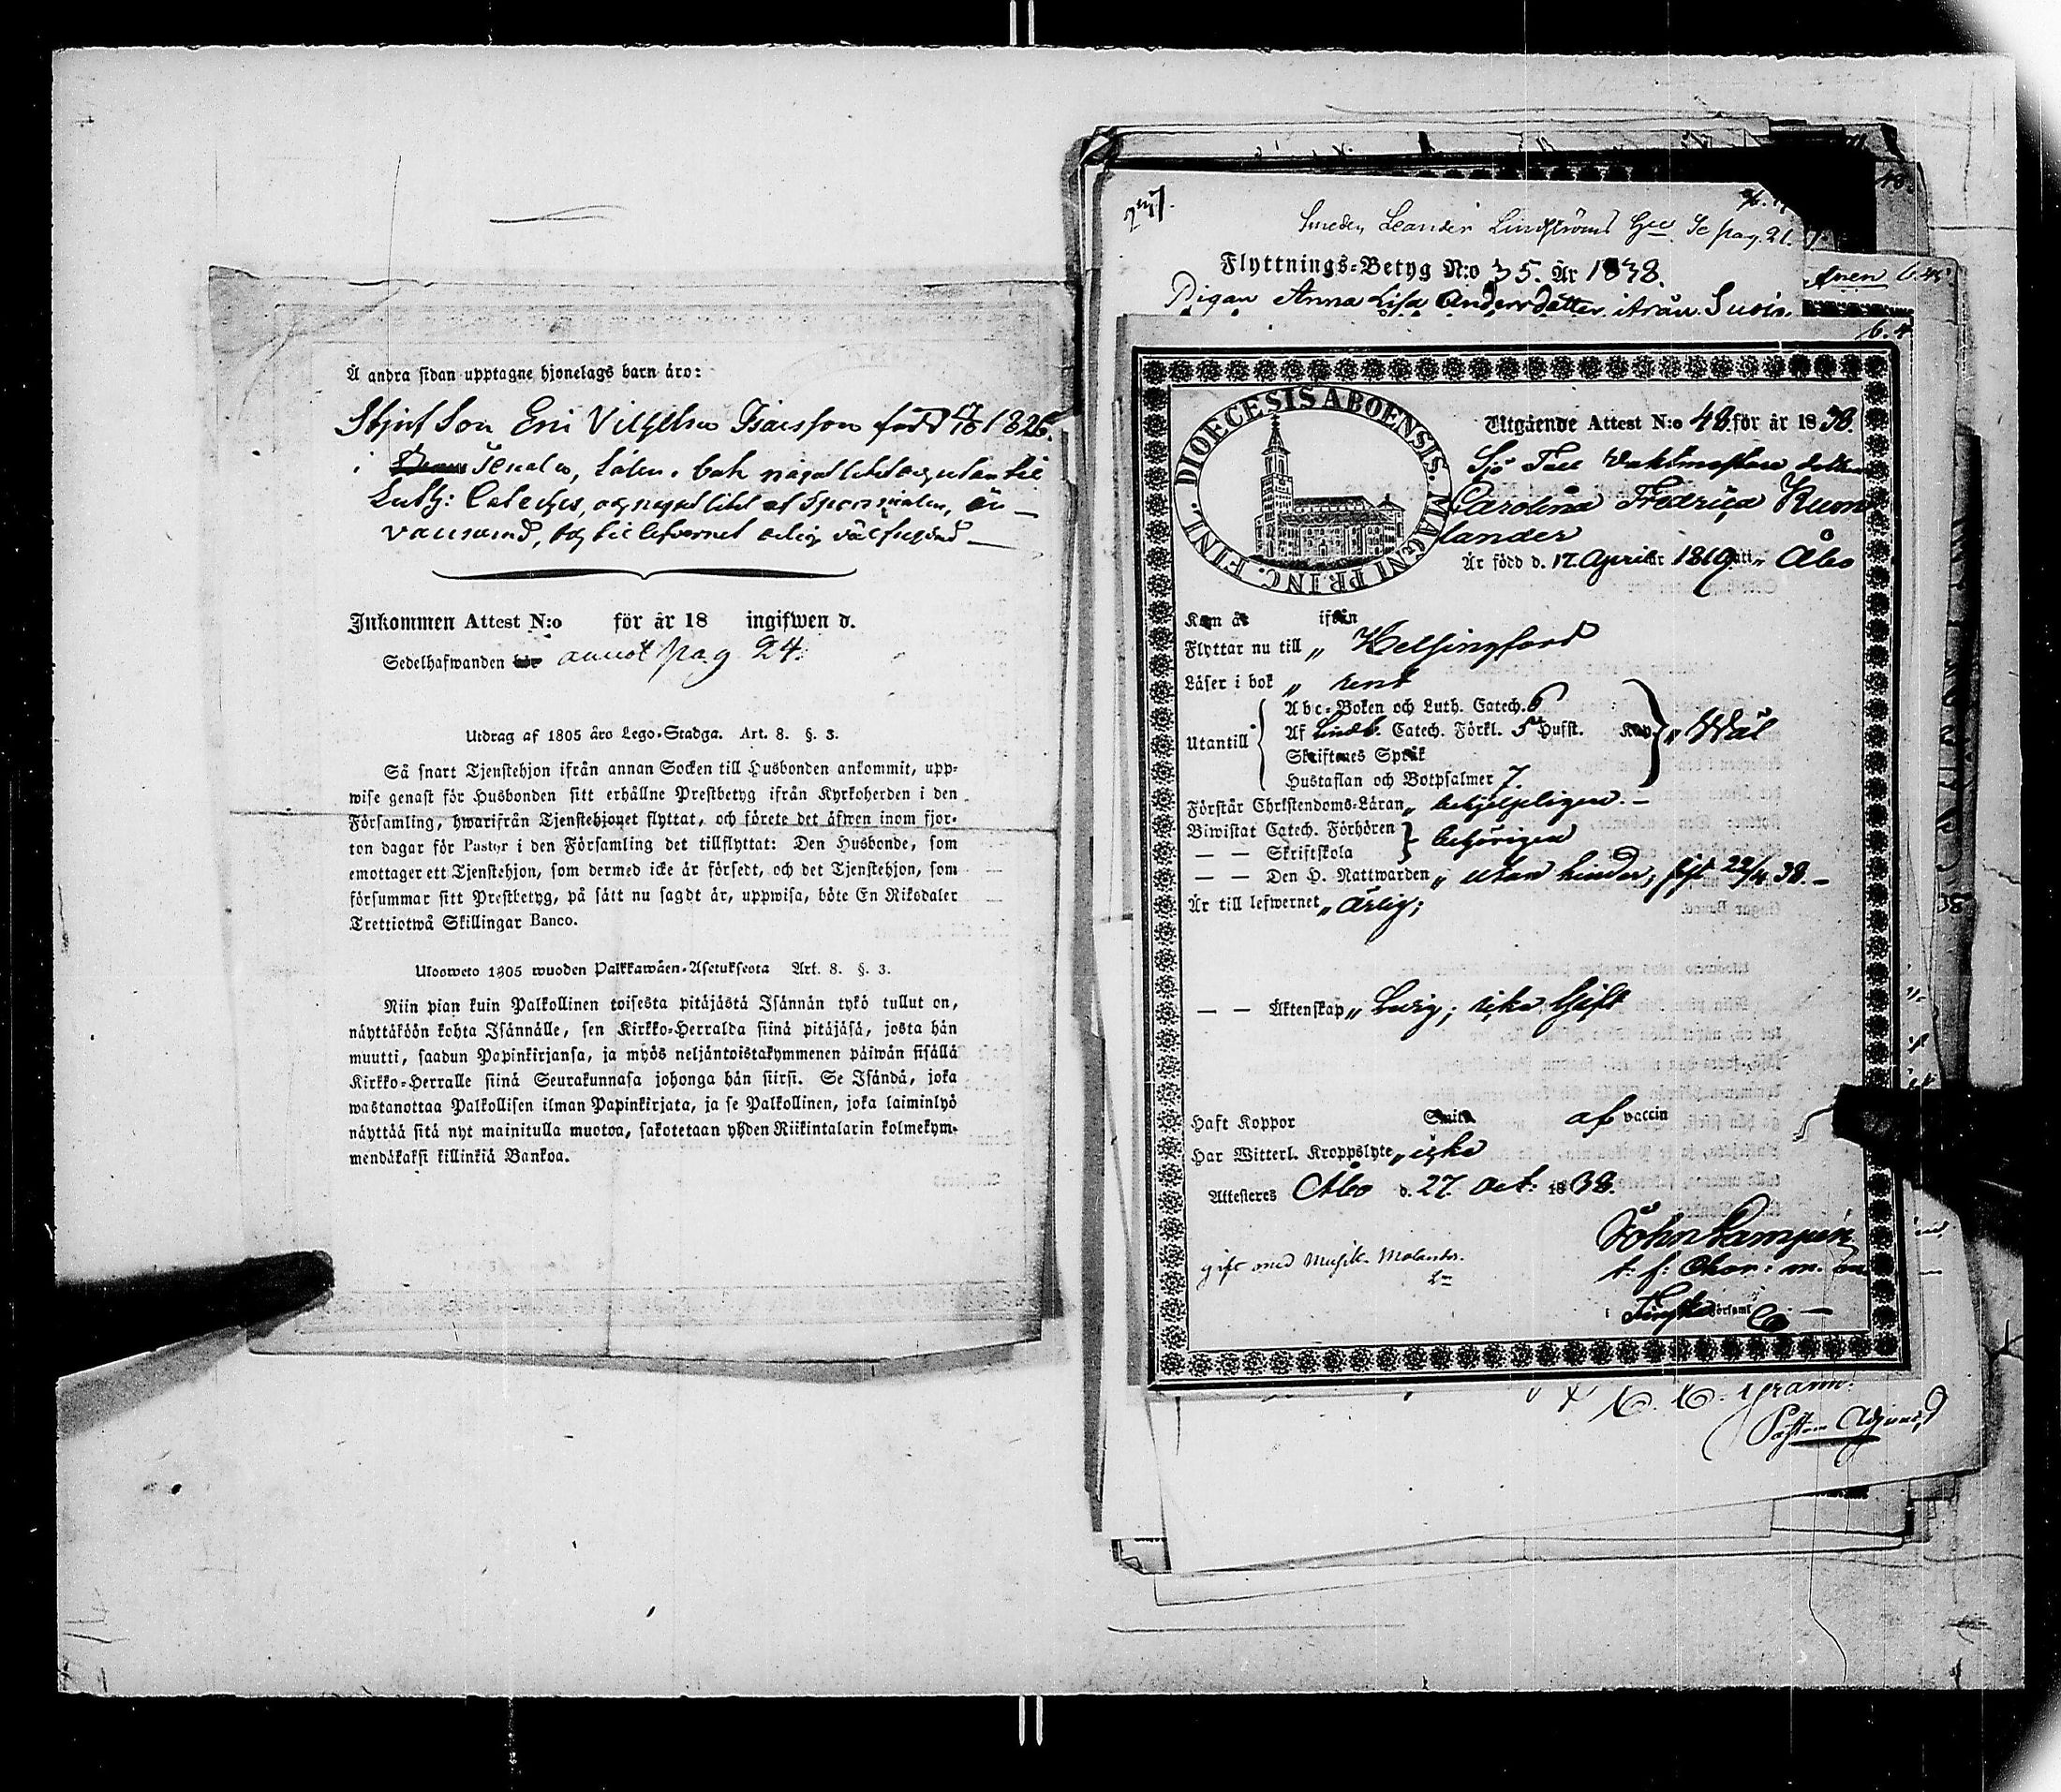 Å andra sidan upptagne hjonelags barn äro:
Styf Son Eric Vilhelm Isacsson född 1826.
i
Luth: Cateches, og något litet af Spörsmålen, är
till lefvernet ärlig
Inkommen Attest N:o för år 18 ingifwen d.
Sedelhafwanden annot pag 24.
Utdrag af 1805 års Lego-Stadga. Art. 8. §. 3.
Så snart Tjenstehjon ifrån annan Socken till Husbonden ankommit, upp-
wise genast för Husbonden sitt erhållne Prestbetyg ifrån Kyrkoherden i den
Församling, hwarifrån Tjenstehjonet flyttat, och förete det äfwen inom fjor-
ton dagar för Pastor i den Församling det tillflyttat: Den Husbonde, som
emottager ett Tjenstehjon, som dermed icke är försedt, och det Tjenstehjon, som
försummar sitt Prestbetyg, på sätt nu sagdt är, uppwisa, böte En Riksdaler
Trettiotwå Skillingar Banco.
Ulosweto 1805 wuoden Palkkawäen-Asetuksesta Art. 8. §. 3.
Niin pian kuin Palkollinen toisesta pitäjästä Isännän tykö tullut on,
näyttäköön kohta Isännälle, sen Kirkko-Herralda siinä pitäjäsä, josta hän
muutti, saadun Papinkirjansa, ja myös neljäntoistakymmenen päiwän sisällä
Kirkko-Herralle siinä Seurakunnasa johonga hän siirsi. Se Isändä, joka
wastanottaa Palkollisen ilman Papinkirjata, ja se Palkollinen, joka laiminlyö
näyttää sitä nyt mainitulla muotoa, sakotetaan yhden Riikintalarin kolmekym-
mendäkaksi killinkiä Bankoa.
Smeden Leander Lindströms Se pag. 21.
Flyttnings-Betyg N:o 35. År 1838.
Pigan Anna Lisa Andersdotter ifrån
DIOECESIS ABOENSIS. MAGNI PRINC. FINL.
Utgående Attest N:o 48. för år 1838.
Sjö Tull Vaktmästare dottern
Carolina Fredrica Rum
lander
Är född d. 17. April år 1819. uti Åbo
Kom år ifrån
Flyttar nu till „ Helsingfors
Läser i bok „ rent
Utantill Abc-Boken och Luth. Catech. 6
Af Lindb. Catech. Förkl. 5 Hufst. Kap. „ Wäl
Skriftenes Språk
Hustaflan och Botpsalmer 7.
Förstår Christendoms-Läran „ behjelpeligen. –
Biwistat Catech. Förhören behörigen
— — Skriftskola
— — Den H. Nattwarden „ utan hinder, sist 22/4 38. –
Är till lefwernet „ ärlig;
— — Äktenskap „ Ledig; icke Gift
Haft Koppor Smitt af vaccin
Har Witterl. Kroppslyte „ icke
Attesteras Åbo d. 27. Oct. 1838.
gift med Musik. Molander.
John
t. f.
i Finska Församl
Grann.
Pastors Adjunct